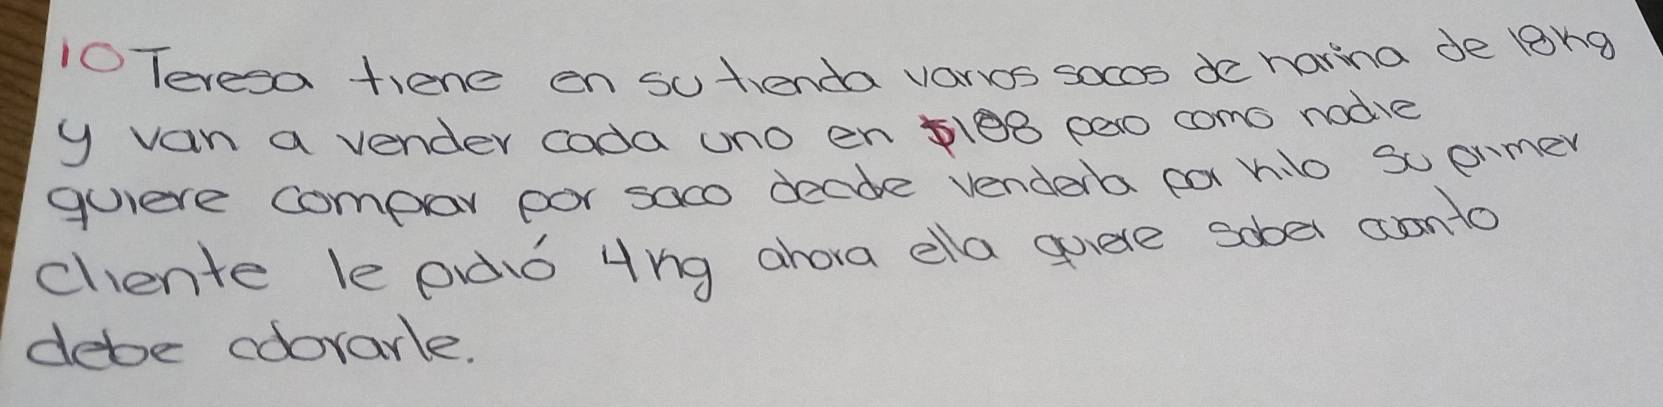 10 Teresa tiene en su tienda varios sacos de harina de 18kg
y van a vender cada uno en $188 pero como nadie
quiere comprar por saco decide venderla por kilo su primer
cliente le pidió 4kg ahora ella quiere saber cuanto
debe cobrarle.